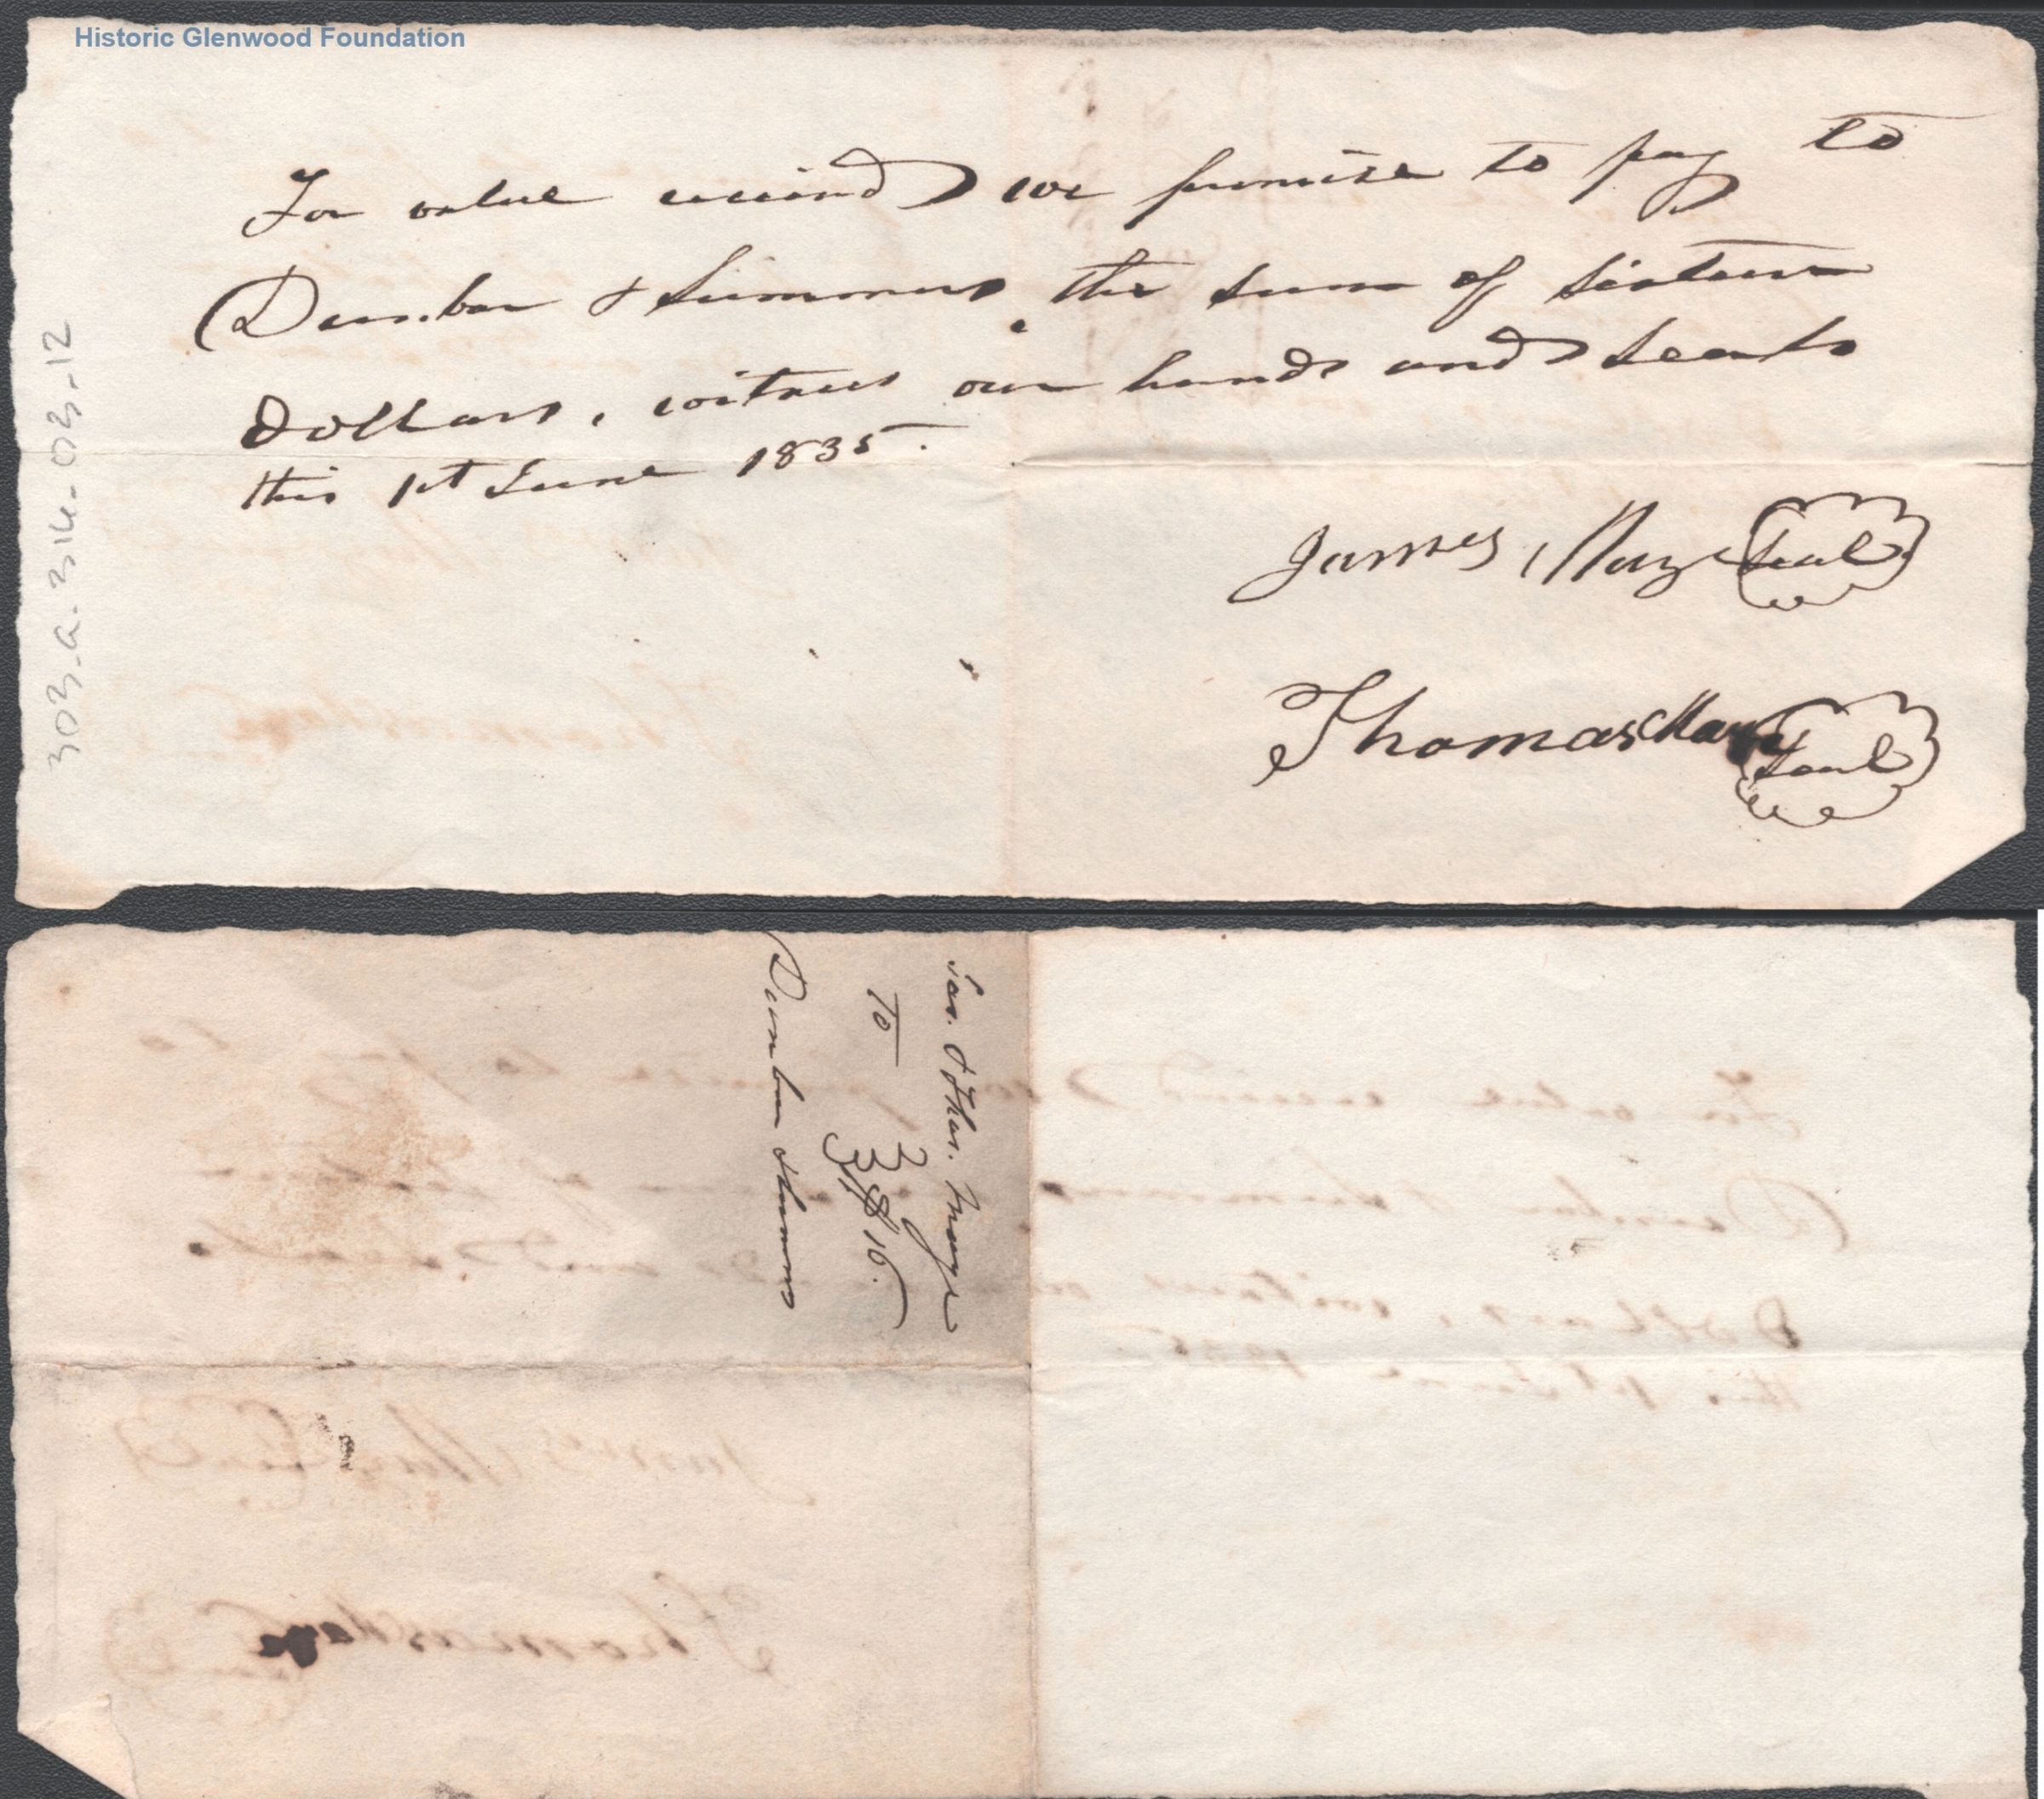 Historic Glenwood Foundation
For value received we promise to pay to
Dunbar & Summers the sum of sixteen
Dollars, witness our hands and seals
this 1st June 1835.
James Maze Seal
Thomas Maze Seal
303.a.314.03.12
Jas. & Thos. Maze
To
$16.
Dunbar & Summers